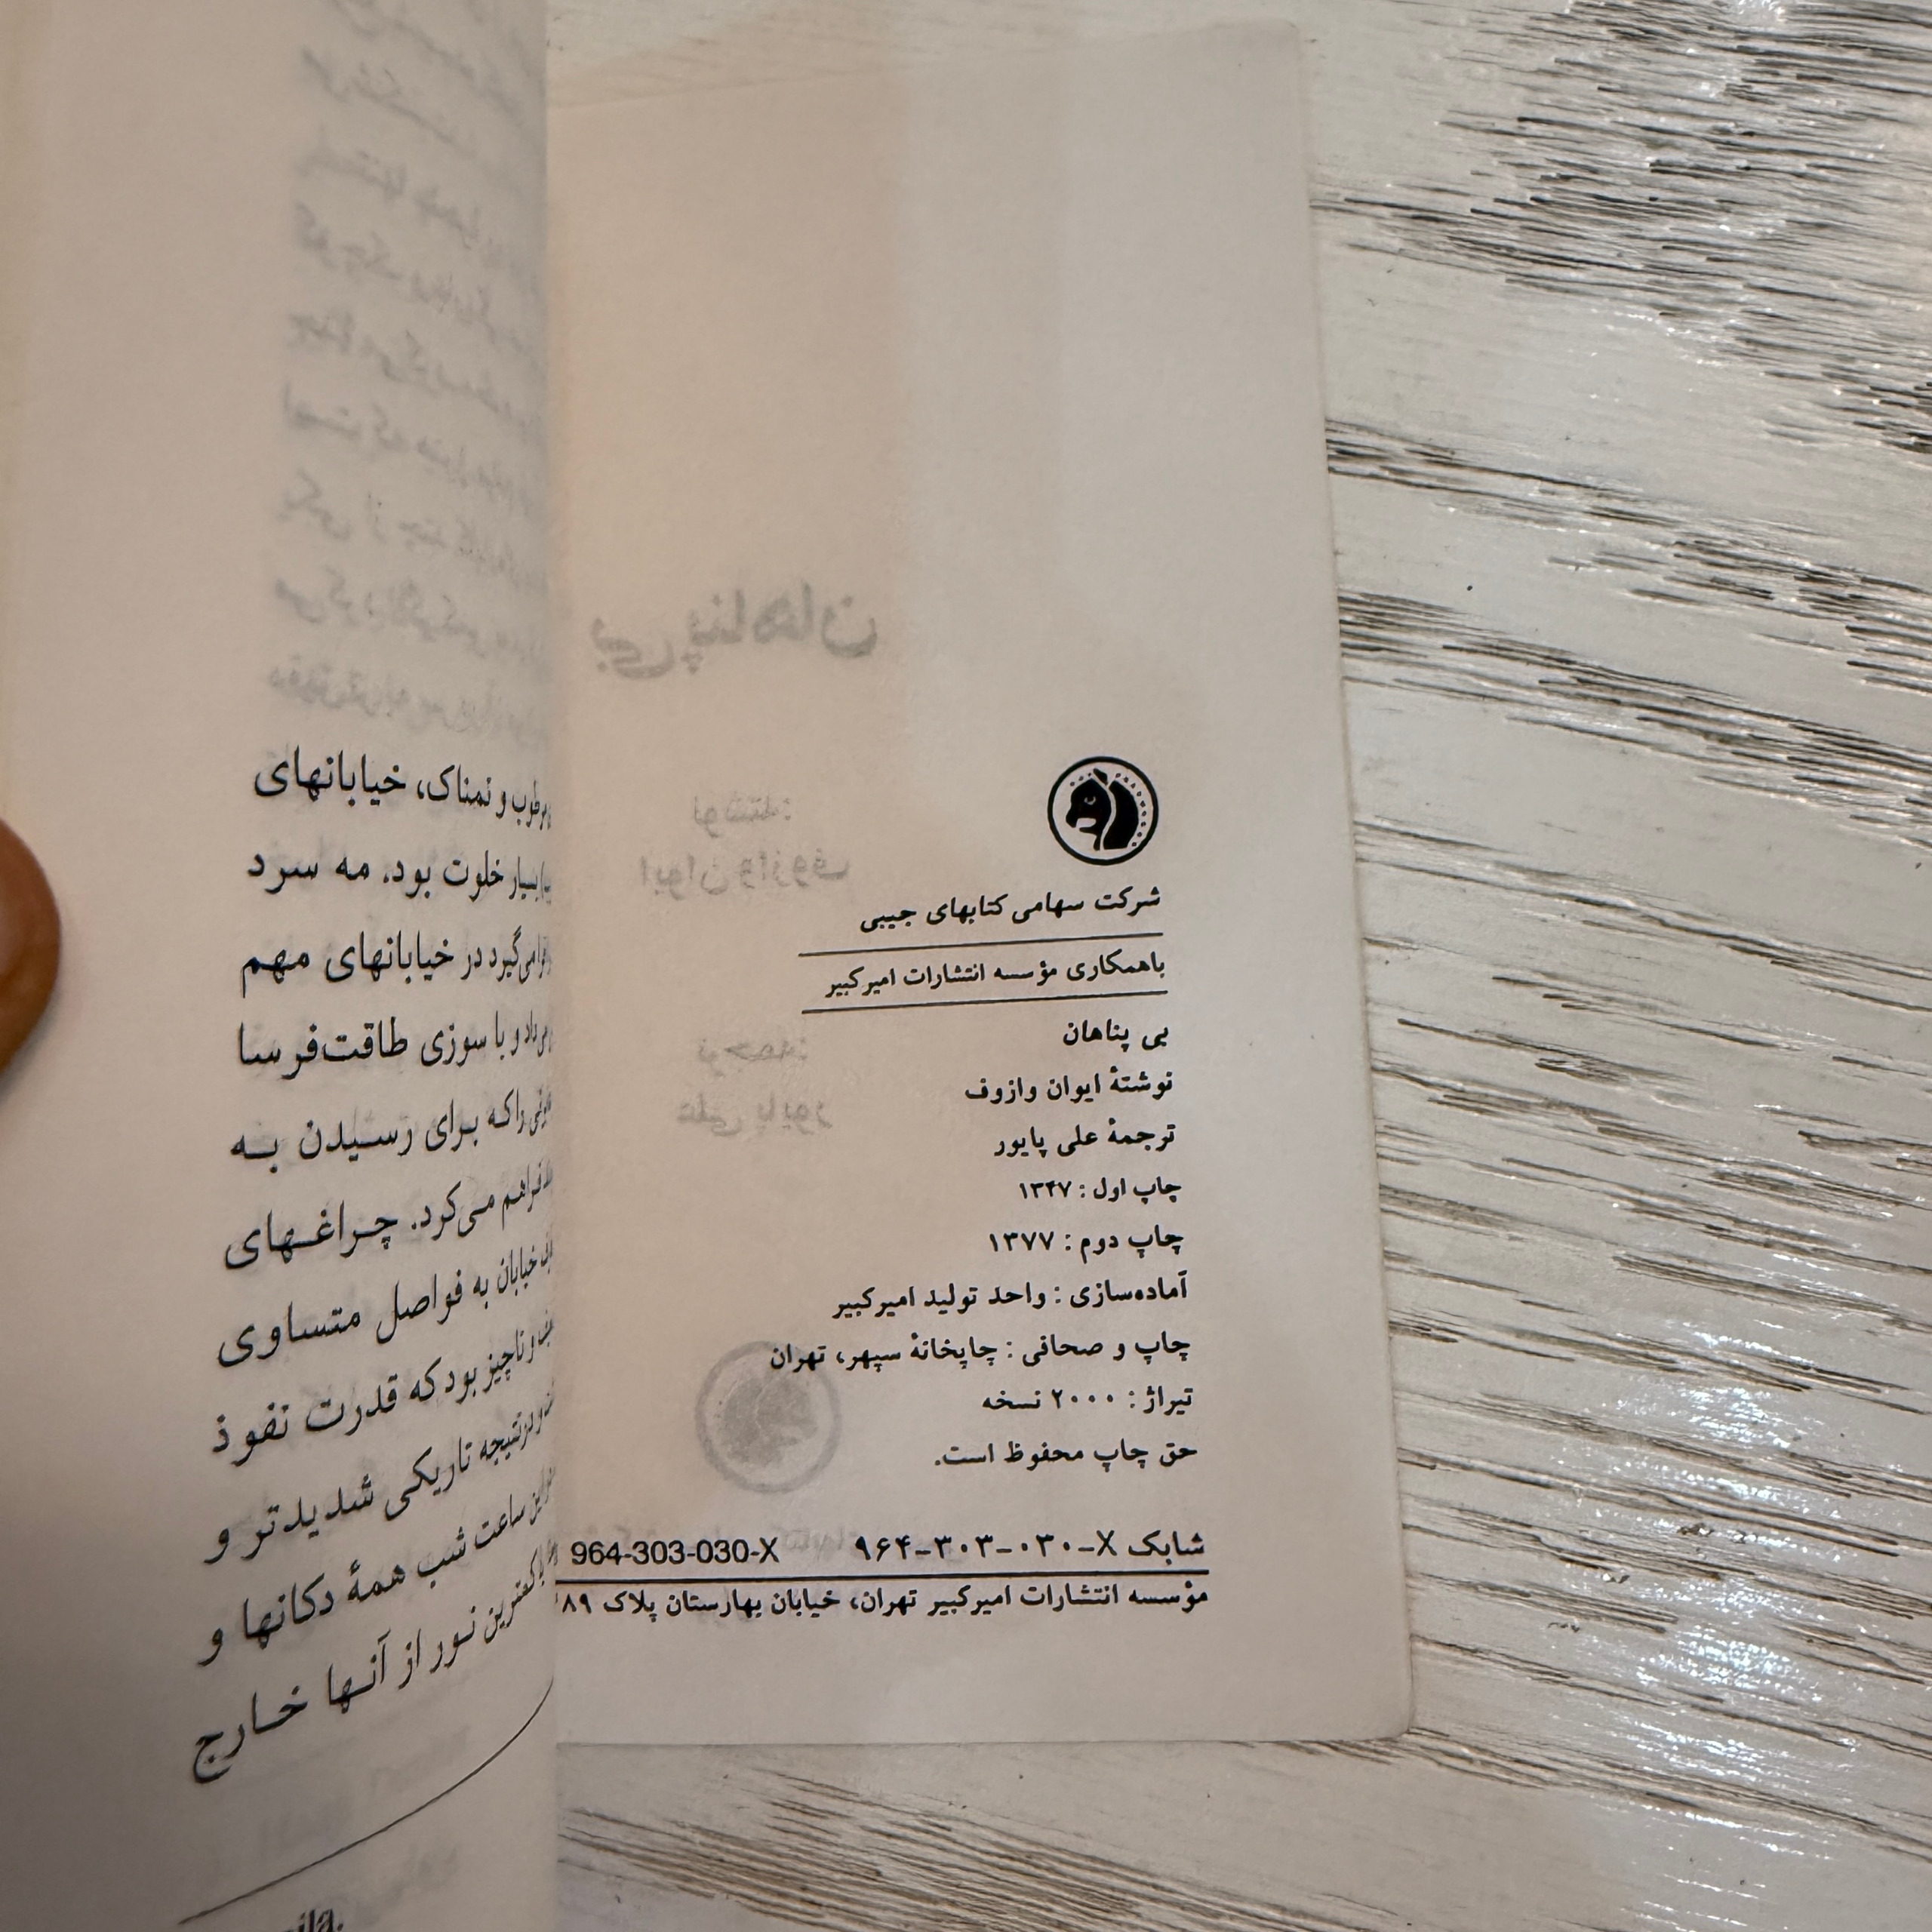 شرکت سهامی کتابهای جیبی
باهمکاری مؤسسه انتشارات امیرکبیر
بی پناهان
نوشتهٔ ایوان وازوف
ترجمهٔ علی پایور
چاپ اول : ۱۳۴۷
چاپ دوم : ۱۳۷۷
آماده‌سازی : واحد تولید امیرکبیر
چاپ و صحافی : چاپخانهٔ سپهر، تهران
تیراژ : ۲۰۰۰ نسخه
حق چاپ محفوظ است.
شابک ۹۶۴-۳۰۳-۰۳۰-X 964-303-030-X
مؤسسه انتشارات امیرکبیر تهران، خیابان بهارستان پلاک ۸۹
مرطوب و نمناک، خیابانهای
بسیار خلوت بود. مه سرد
می‌گیرد در خیابانهای مهم
و با سوزی طاقت‌فرسا
را که برای رسیدن به
فراهم می‌کرد. چراغهای
خیابان به فواصل متساوی
و ناچیز بود که قدرت نفوذ
و درنتیجه تاریکی شدیدتر و
این ساعت شب همهٔ دکانها و
کمترین نور از آنها خارج